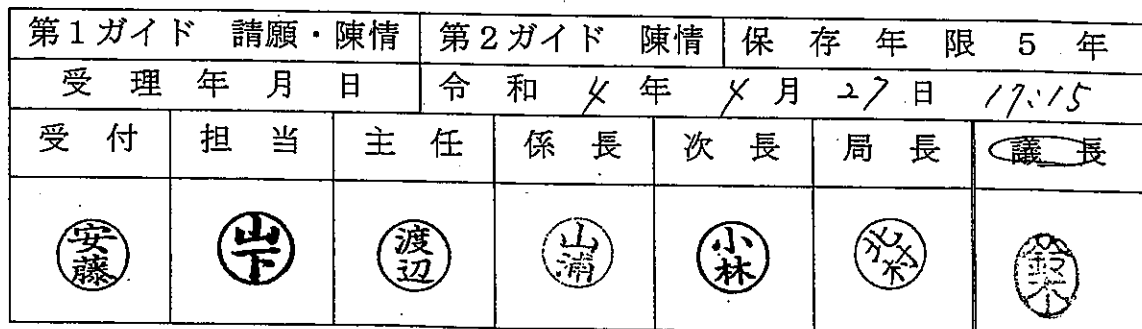 第1ガイド 請願・陳情 第2ガイド 陳情 保存年限 5年
受理年月日 令和4年4月27日 17:15
受付 担当 主任 係長 次長 局長 議長
安藤 山下 渡辺 山浦 小林 北村 鈴木